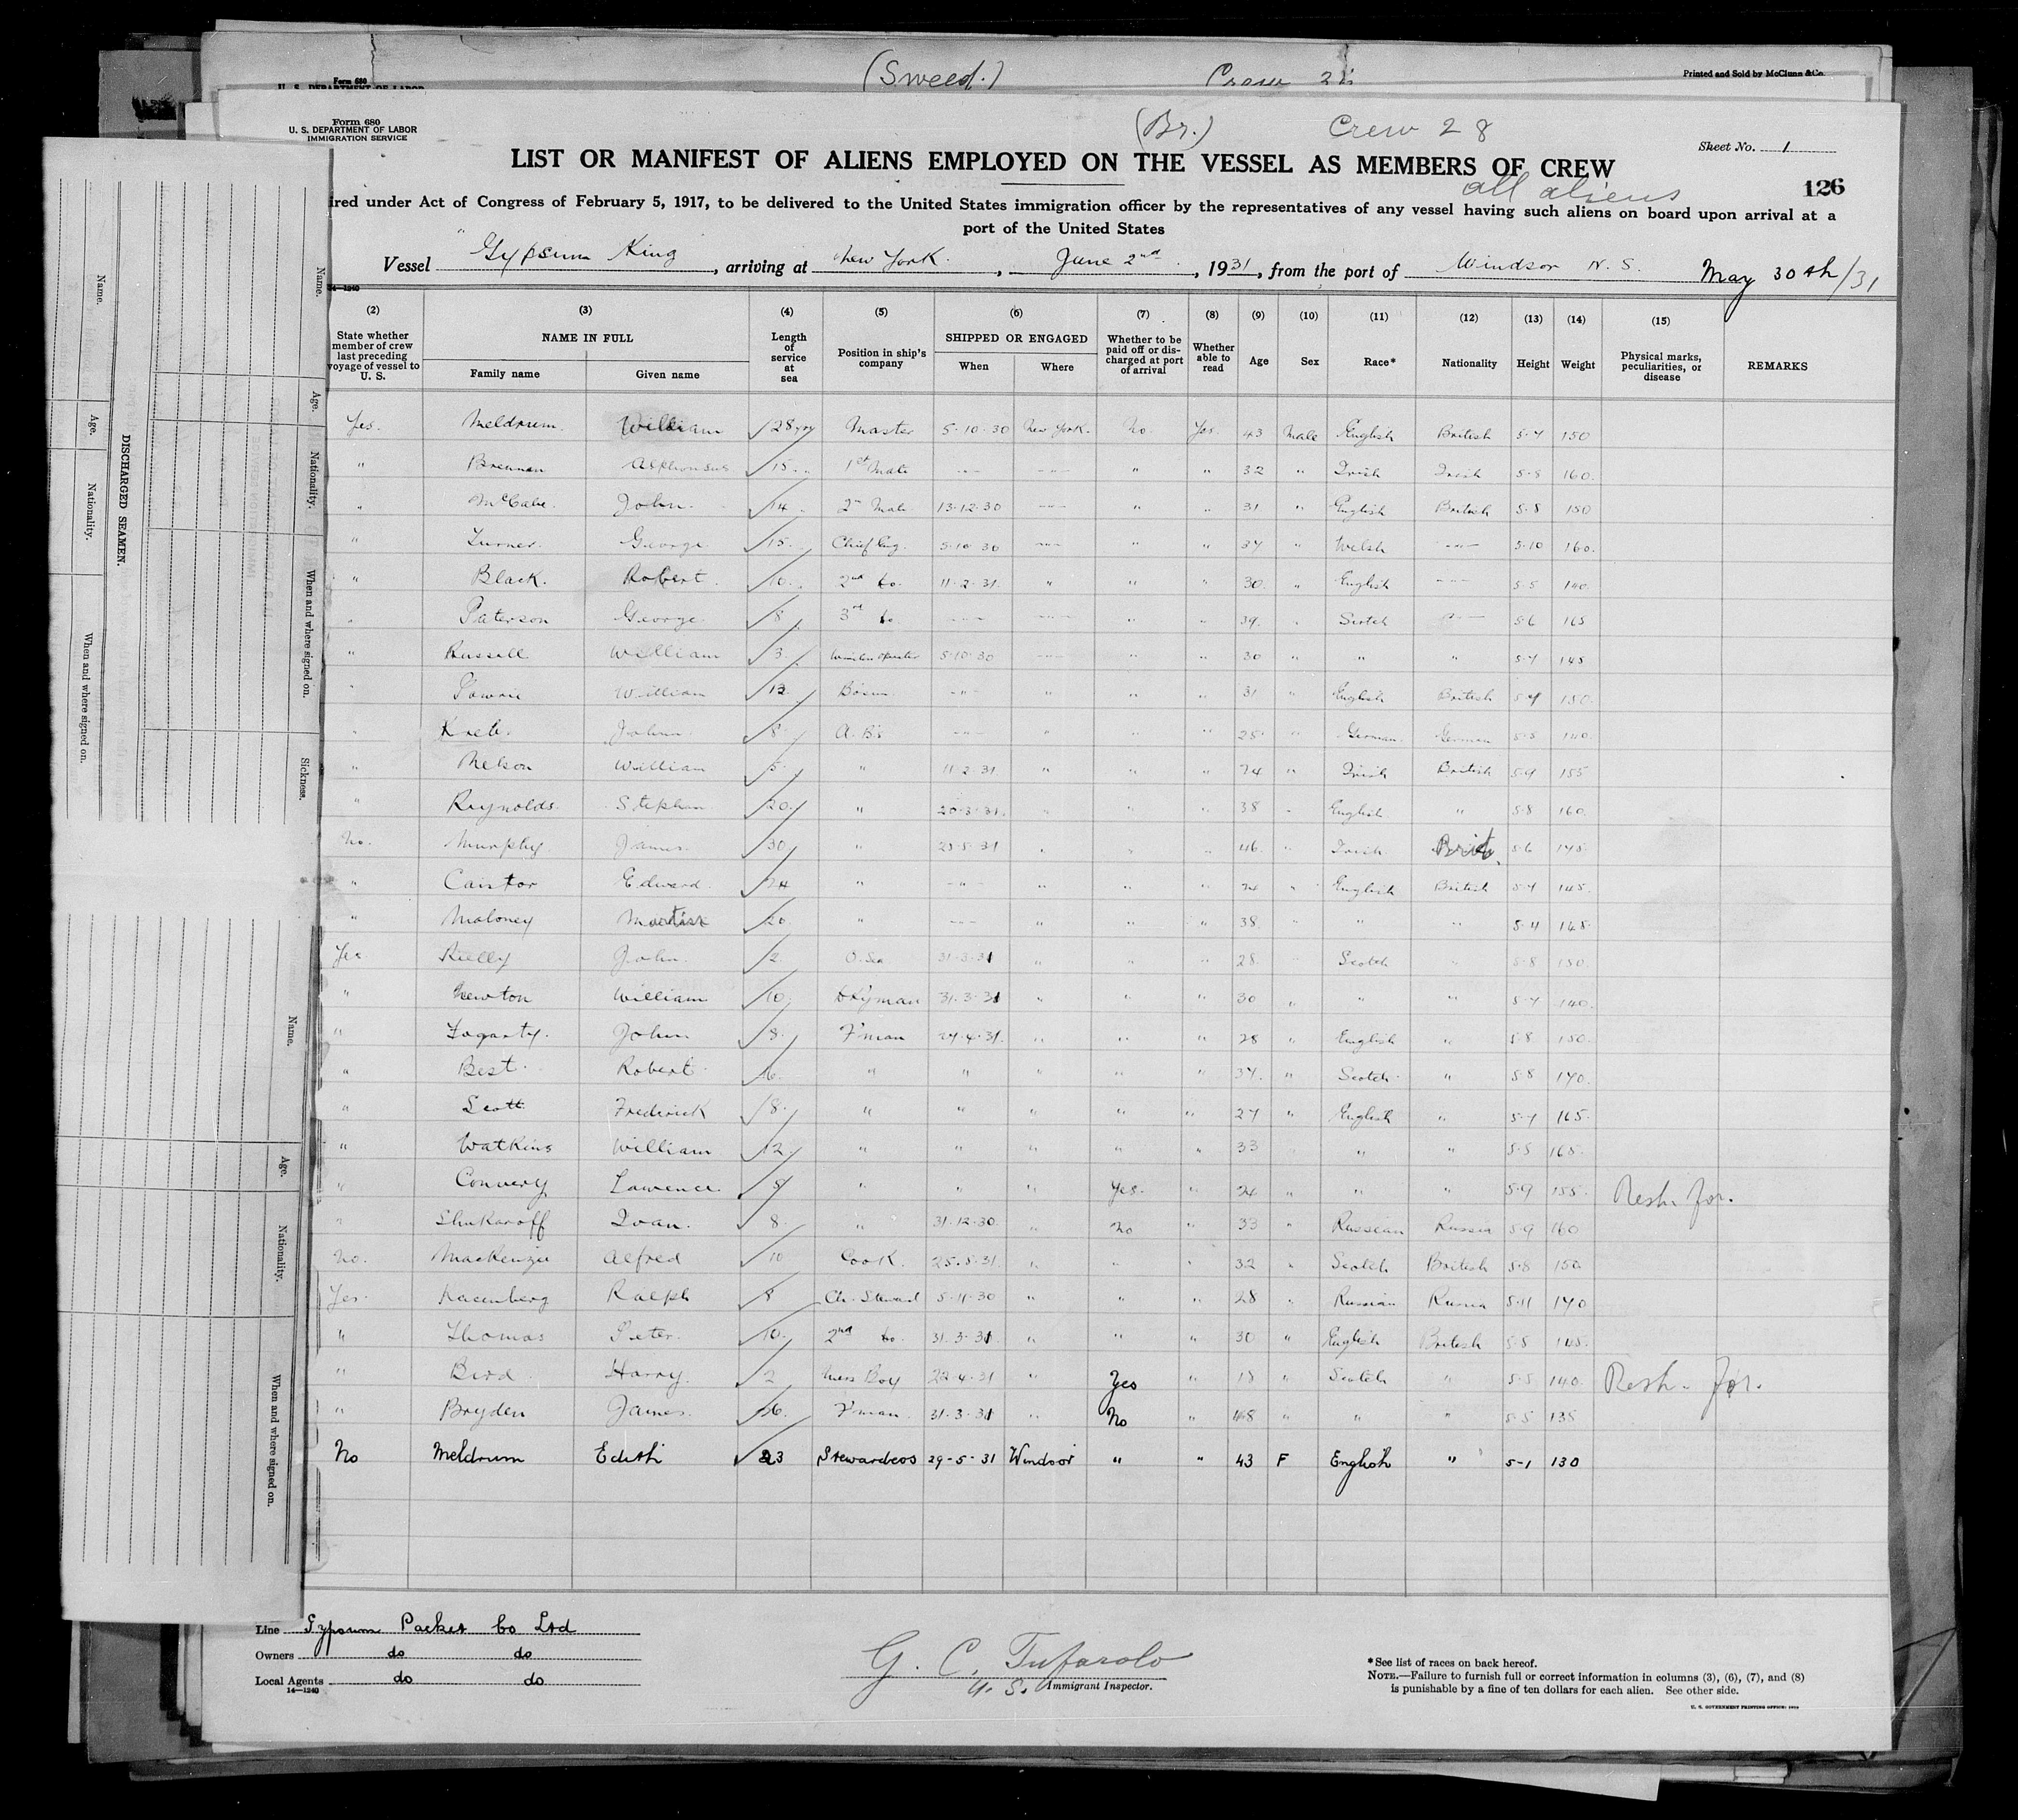 (Sweed.) Crew
Form 680
Printed and Sold by McClunn & Co.
Form 680
U. S. DEPARTMENT OF LABOR
IMMIGRATION SERVICE
(Br.) Crew 28
Sheet No. 1
LIST OR MANIFEST OF ALIENS EMPLOYED ON THE VESSEL AS MEMBERS OF CREW
all aliens
126
ired under Act of Congress of February 5, 1917, to be delivered to the United States immigration officer by the representatives of any vessel having such aliens on board upon arrival at a
port of the United States
Vessel "Gypsum King, arriving at New York, June 2nd, 1931, from the port of Windsor N. S. May 30th/31
14—1240
(2) (3) (4) (5) (6) (7) (8) (9) (10) (11) (12) (13) (14) (15)
State whether member of crew last preceding voyage of vessel to U. S. NAME IN FULL Family name Given name Length of service at sea Position in ship's company SHIPPED OR ENGAGED When Where Whether to be paid off or discharged at port of arrival Whether able to read Age Sex Race* Nationality Height Weight Physical marks, peculiarities, or disease REMARKS
Yes. Meldrum. William 28 yrs Master 5-10-30 New York. No. Yes. 43 Male English British 5-7 150
" Brennan Alphonsus 15 1st Mate --- --- " " 32 " Irish Irish 5-8 160.
" McCabe. John. 14 2nd Mate 13-12-30 --- " " 31 " English British 5-8 150
" Turner. George 15. Chief Eng. 5-10-30 --- " " 37 " Welsh --- 5-10 160.
" Black. Robert. 10. 2nd do. 11-2-31. " " " 30. " English --- 5-5 140.
" Paterson George. 8 3rd do. --- --- " " 39. " Scotch --- 5-6 165
" Russell William 3 Wireless Operator 5-10-30 --- " " 30 " " " 5-7 145
" William 12. Bosun. --- " " " 31 " English British 5-7 150.
" John. 8. A. B's --- " " " 25 " German. German 5-5 140.
" Nelson William 5. " 11-2-31 " " " 24 " Irish British 5-9 155
" Reynolds. Stephen 20. " 20-3-31. " " " 38 " English " 5-8 160.
No. Murphy. James. 30. " 25-5-31 " " " 46. " Irish. Brit. 5-6 145.
" Caistor Edward. 24 " --- " " " 24 " English British 5-7 145.
" Maloney Martin 20. " --- " " " 38. " " " 5-4 148.
Yes Rielly John. 2. O. Sea 31-3-31 " " " 28. " Scotch " 5-8 150.
" Newton William 10. D'Kyman 31-3-31 " " " 30 " " " 5-7 140.
" Fogarty. John 8. F'man 27-4-31. " " " 28 " English " 5-8 150.
" Best. Robert. 6. " " " " " 37. " Scotch. " 5-8 170.
" Scott Frederick 8. " " " " " 27 " English " 5-7 165.
" Watkins William 12. " " " " " 33 " " " 5-5 165.
" Convery Lawrence. 8 " " " Yes. " 24 " " " 5-9 155. Resh. for.
" Shukaroff Ivan. 8. " 31-12-30. " No " 33 " Russian Russia 5-9 160
No. Mackenzie Alfred 10 Cook. 25-5-31. " " " 32 " Scotch British 5-8 150.
Yes. Ralph 8 Ch. Steward 5-11-30 " " " 28 " Russian Russia 5-11 170
" Thomas Peter. 10. 2nd do. 31-3-31. " " " 30 " English British 5-8 145.
" Bird Harry. 2 Mess Boy 22-4-31 " Yes " 18 " Scotch " 5-5 140. Resh. for.
" Bryden James. 26. F'man. 31-3-31 " No " 48 " " " 5-5 135
No Meldrum Edith 23 Stewardess 29-5-31 Windsor " " 43 F English " 5-1 130
Line Gypsum Packet Co Ltd
Owners do do
Local Agents do do
14—1240
G. C. Tufarolo
U. S. Immigrant Inspector.
*See list of races on back hereof.
NOTE.—Failure to furnish full or correct information in columns (3), (6), (7), and (8)
is punishable by a fine of ten dollars for each alien. See other side.
U. S. GOVERNMENT PRINTING OFFICE:
DISCHARGED SEAMEN.
Name. Age. Nationality. When and where signed on.
Name. Age. Nationality. When and where signed on. Sickness.
Name. Age. Nationality. When and where signed on.